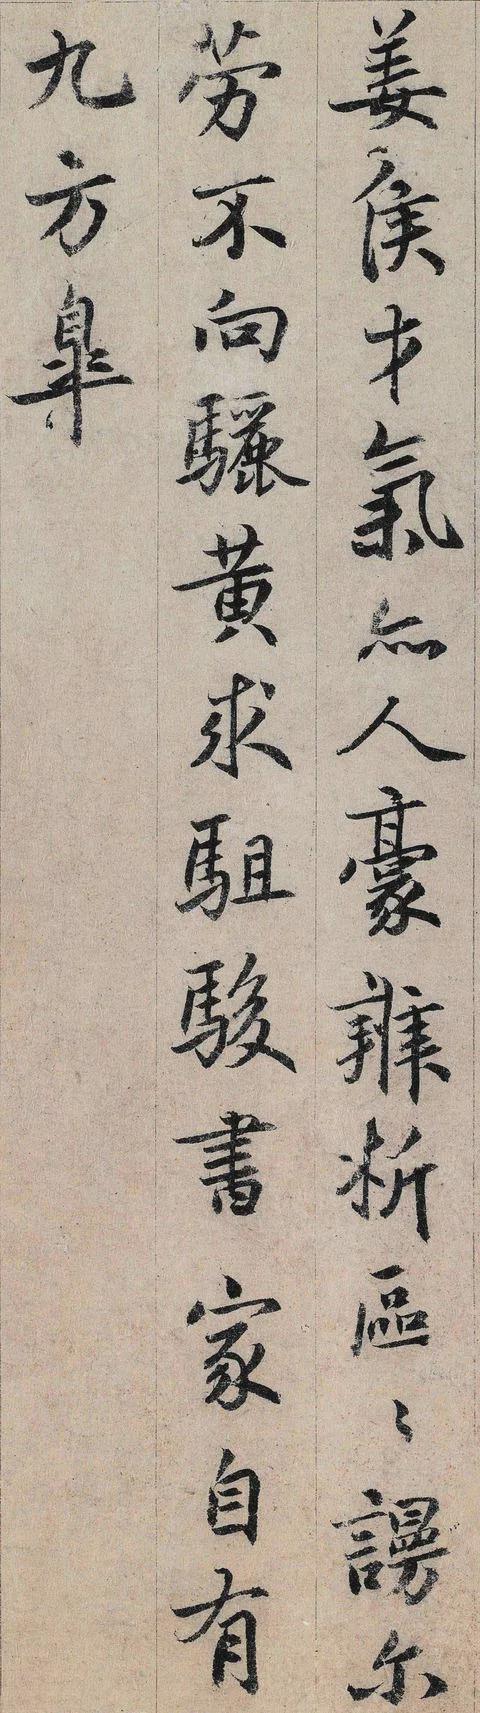 姜侯才氣亦人豪辨析區〻謾尔
劳不向驪黄求駔駿書家自有
九方皐